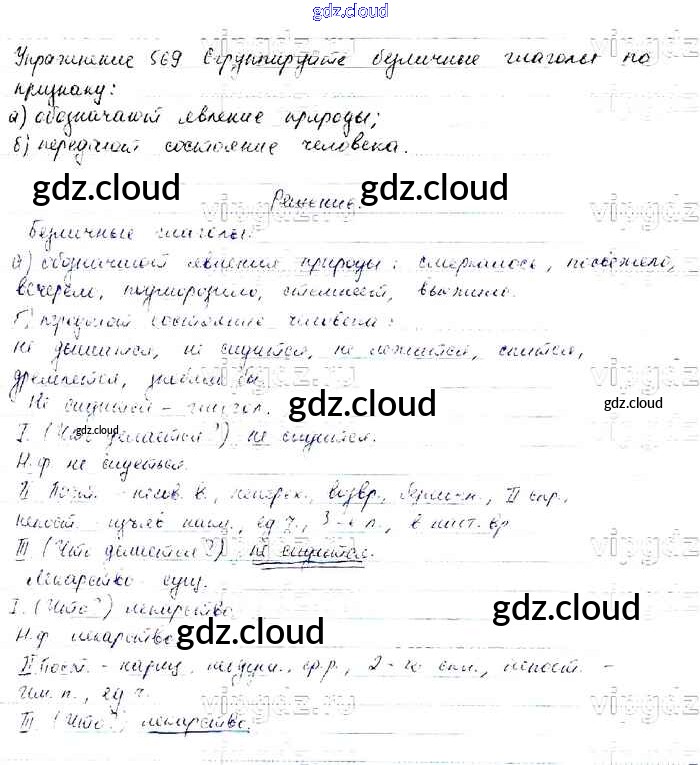 gdz.cloud
Упражнение 569 Сгруппируйте безличные глаголы по
признаку:
а) обозначают явление природы;
б) передают состояние человека.
gdz.cloud gdz.cloud
Решение.
Безличные глаголы:
а) обозначают явления природы: смеркалось, посвежело,
вечерело, подморозило, стемнеет,
б) передают состояние человека:
не дышится, не сидится, не лежится, спится,
дремлется, знобило бы.
gdz.cloud gdz.cloud
Не сидится - глагол.
gdz.cloud
I. (Что делается?) не сидится.
Н.ф. не сидеться.
II Пост. - несов. в., неперех., возвр., безличн., II спр.,
непост. - изъяв. накл., ед. ч., 3-е л., в наст. вр.
III (Что делается?) не сидится.
Лекарство - сущ.
gdz.cloud
I. (Что?) лекарство.
Н.ф. лекарство.
gdz.cloud
II Пост. - нариц., неодуш., ср.р., 2-е скл., непост. -
им. п., ед. ч.
III (Что?) лекарство.
vipgdz.ru